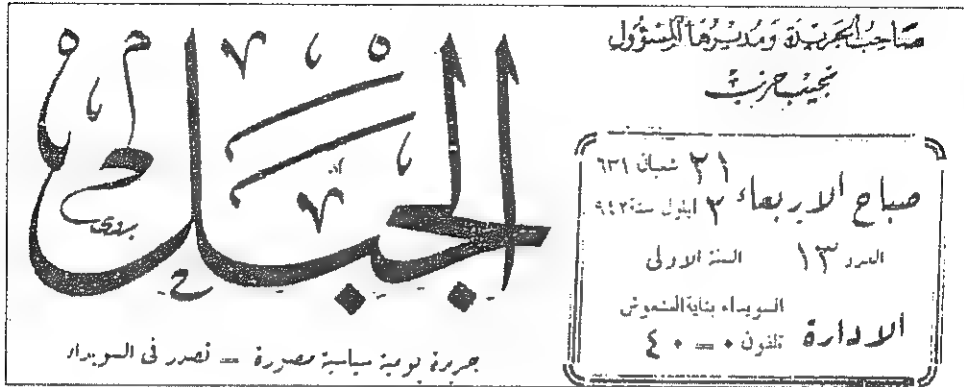 صاحب الجريدة ومديرها المسؤول
نجيب حرب
الجبل
بدوي
٢١ شعبان ٦٣١
صباح الاربعاء
٢ ايلول سنة ٩٤٢
العدد ١٣ السنة الاولى
السويداء بناية
الادارة
تلفون
جريدة يومية سياسية مصورة – تصدر في السويداء